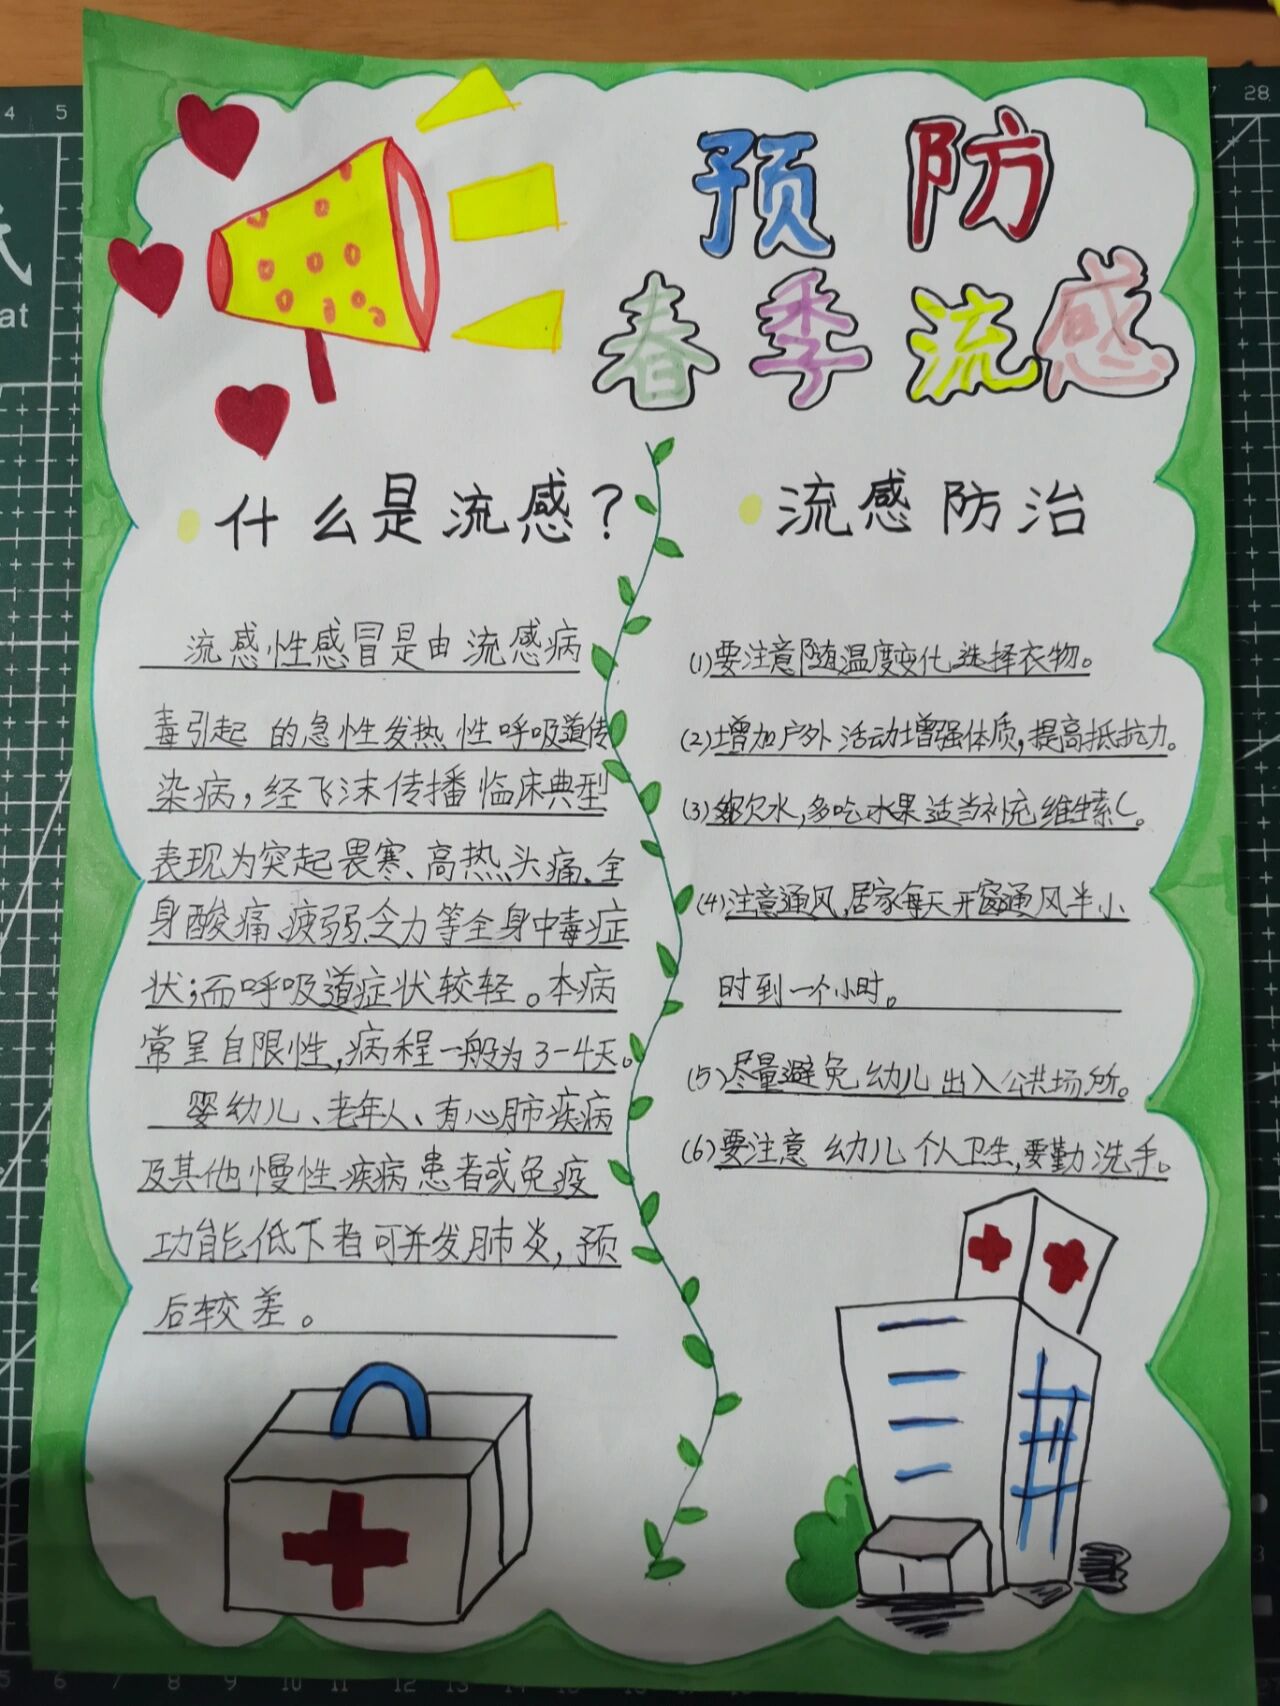 预防
春季流感
什么是流感？
流感性感冒是由流感病
毒引起 的急性发热性呼吸道传
染病，经飞沫传播临床典型
表现为突起畏寒、高热、头痛、全
身酸痛、疲弱、乏力等全身中毒症
状；而呼吸道症状较轻。本病
常呈自限性，病程一般为3-4天。
婴幼儿、老年人、有心肺疾病
及其他慢性疾病患者或免疫
功能低下者可并发肺炎，预
后较差。
流感防治
(1)要注意随温度变化选择衣物。
(2)增加户外活动增强体质，提高抵抗力。
(3)欠水，多吃水果适当补充维生素C。
(4)注意通风，居家每天开窗通风半小
时到一个小时。
(5)尽量避免幼儿出入公共场所。
(6)要注意幼儿个人卫生，要勤洗手。
4 5
28
at
5 6 7 8 9 10 11 12 13 14